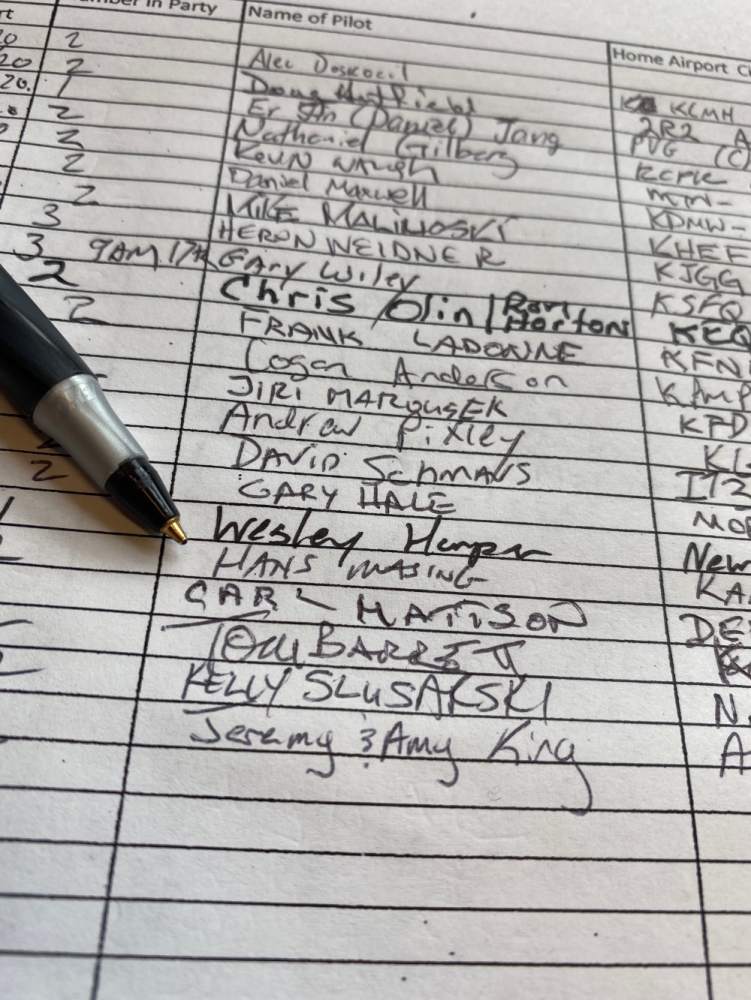 Number in Party Name of Pilot Home Airport
20 2 Alec Doskocil KCMH
20 2 Doug Hatfield 2R2 A
20. 1 Er Jin (Daniel) Jang PVG (C
2 Nathaniel Gilberg
2 Kevin Waugh
2 Daniel Maxwell KDMW-
2 MIKE MALINOSKI KHEF
3 HERON WEIDNER KJGG
3 9AM 17th Gary Wiley KSFQ
2 Chris Olin | Ron Hortons
2 FRANK LADONNE KFN
Logan Anderson KAMP
JIRI MAROUSEK KPD
Andrew Pixley KL
DAVID SCHMAUS I73
2 GARY HALE
Wesley Harper New
HANS MASING KA
CARL MATTISON DE
TOM BARRETT
KELLY SLUSARSKI N
Jeremy & Amy King A